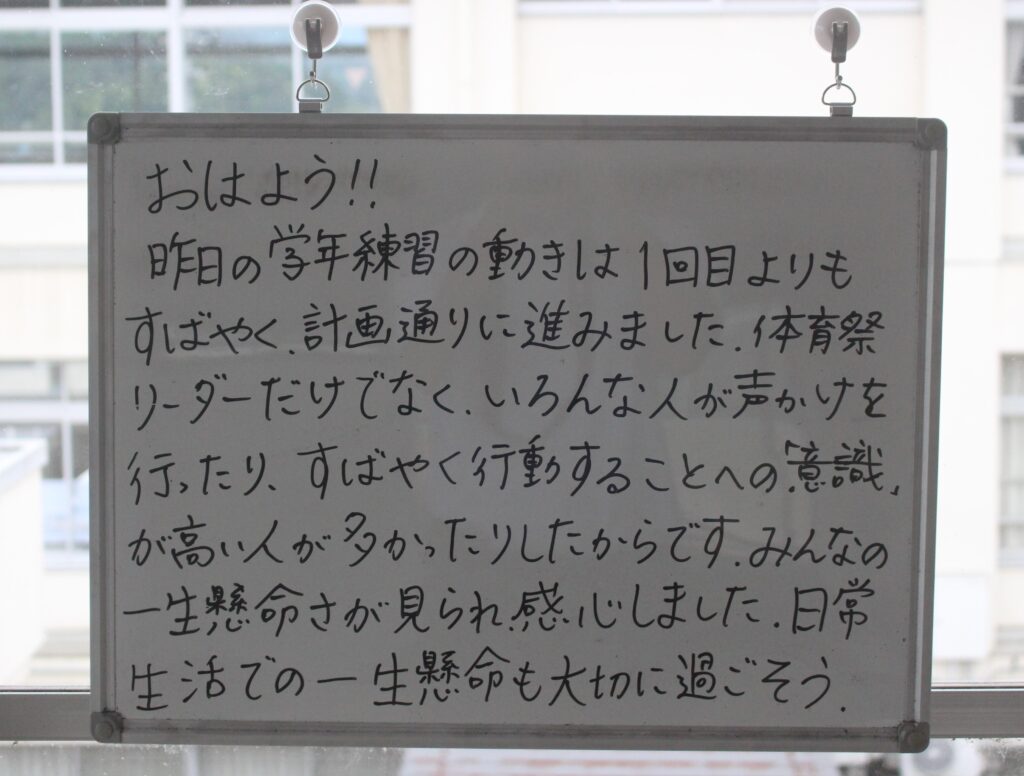 おはよう!!
昨日の学年練習の動きは1回目よりも
すばやく、計画通りに進みました.体育祭
リーダーだけでなく、いろんな人が声かけを
行ったり、すばやく行動することへの「意識」
が高い人が多かったりしたからです.みんなの
一生懸命さが見られ、感心しました.日常
生活での一生懸命も大切に過ごそう.